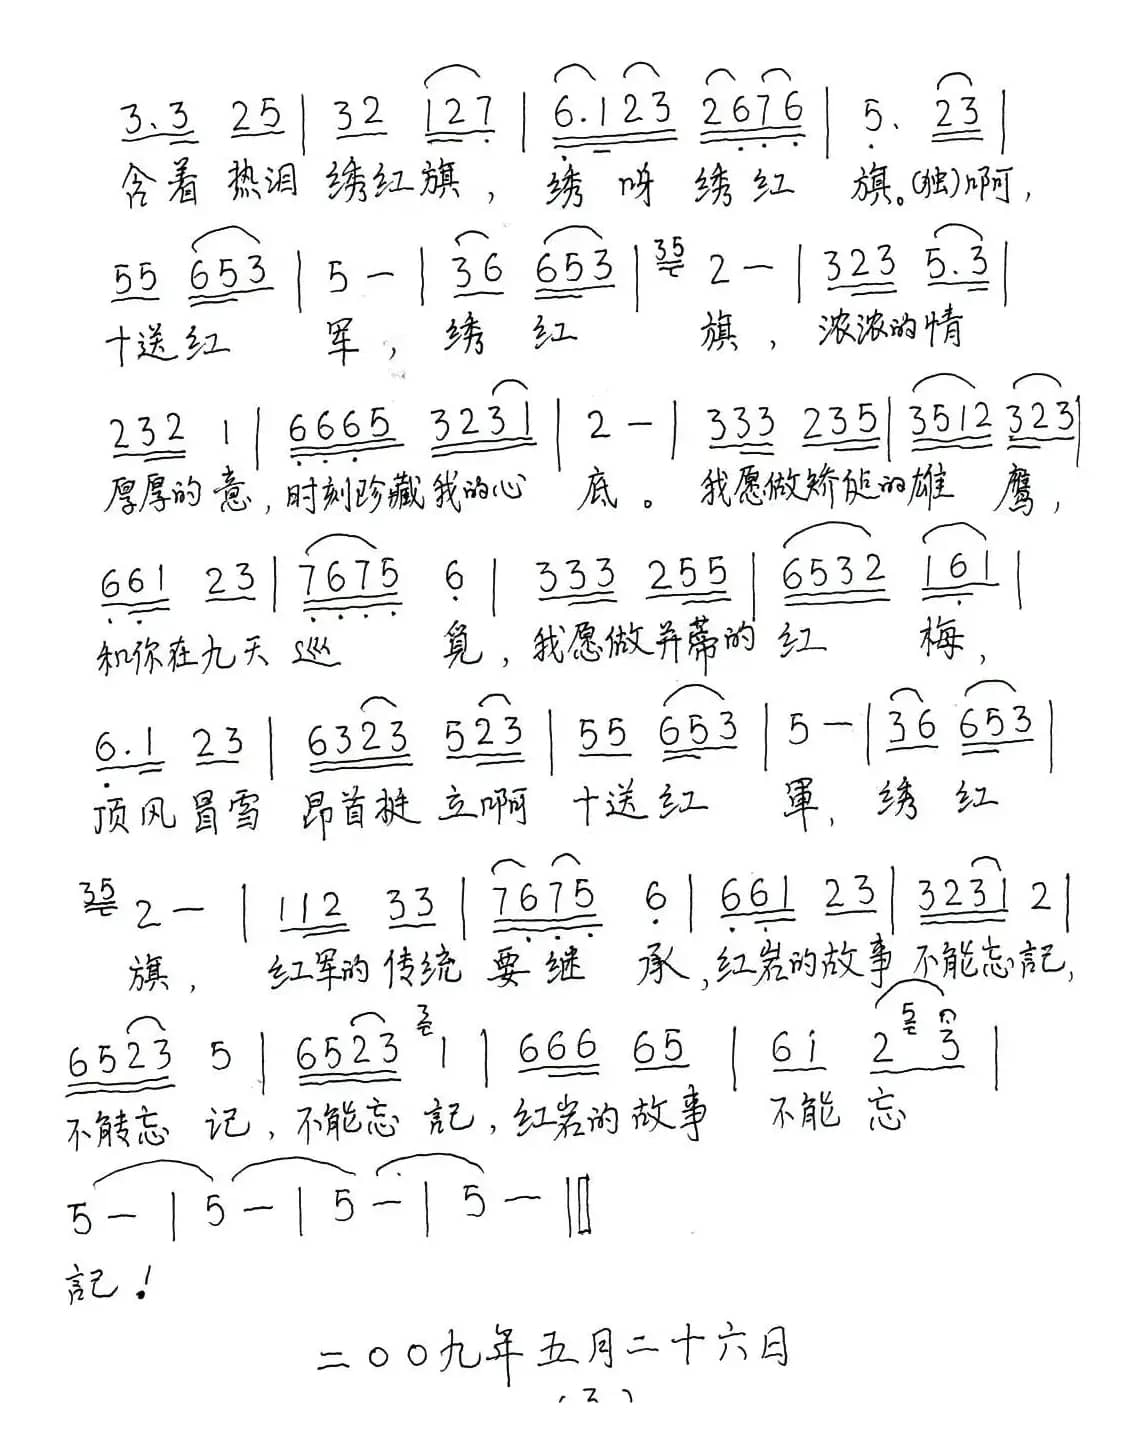 3.3 25 | 32 127 | 6.123 2676 | 5. 23 |
含着 热泪 绣红旗， 绣 呀 绣 红 旗。(独)啊，
55 653 | 5 — | 36 653 | 35 2 — | 323 5.3 |
十送红 军， 绣 红 旗， 浓浓的情
232 1 | 6665 3231 | 2 — | 333 235 | 3512 323 |
厚厚的 意，时刻珍藏我的心 底。 我愿做矫健的雄 鹰，
661 23 | 7675 6 | 333 255 | 6532 161 |
和你在九天 巡 觅，我愿做并蒂的 红 梅，
6.1 23 | 6323 523 | 55 653 | 5 — | 36 653 |
顶风冒雪 昂首挺 立啊 十送 红 軍， 绣 红
35 2 — | 112 33 | 7675 6 | 661 23 | 3231 2 |
旗， 红军的 传统 要 继 承，红岩的故事 不能忘記，
6523 5 | 6523 2 1 | 666 65 | 61 2 5 3 |
不能忘 记，不能忘 記，红岩的 故事 不能 忘
5 — | 5 — | 5 — | 5 — ‖
記！
二〇〇九年五月二十六日